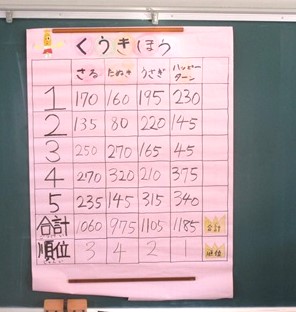 くうきほう
さる たぬき うさぎ ハッピーターン
1 170 160 195 230
2 135 80 220 145
3 250 270 165 45
4 270 320 210 375
5 235 145 315 340
合計 1060 975 1105 1185 合計
順位 3 4 2 1 順位